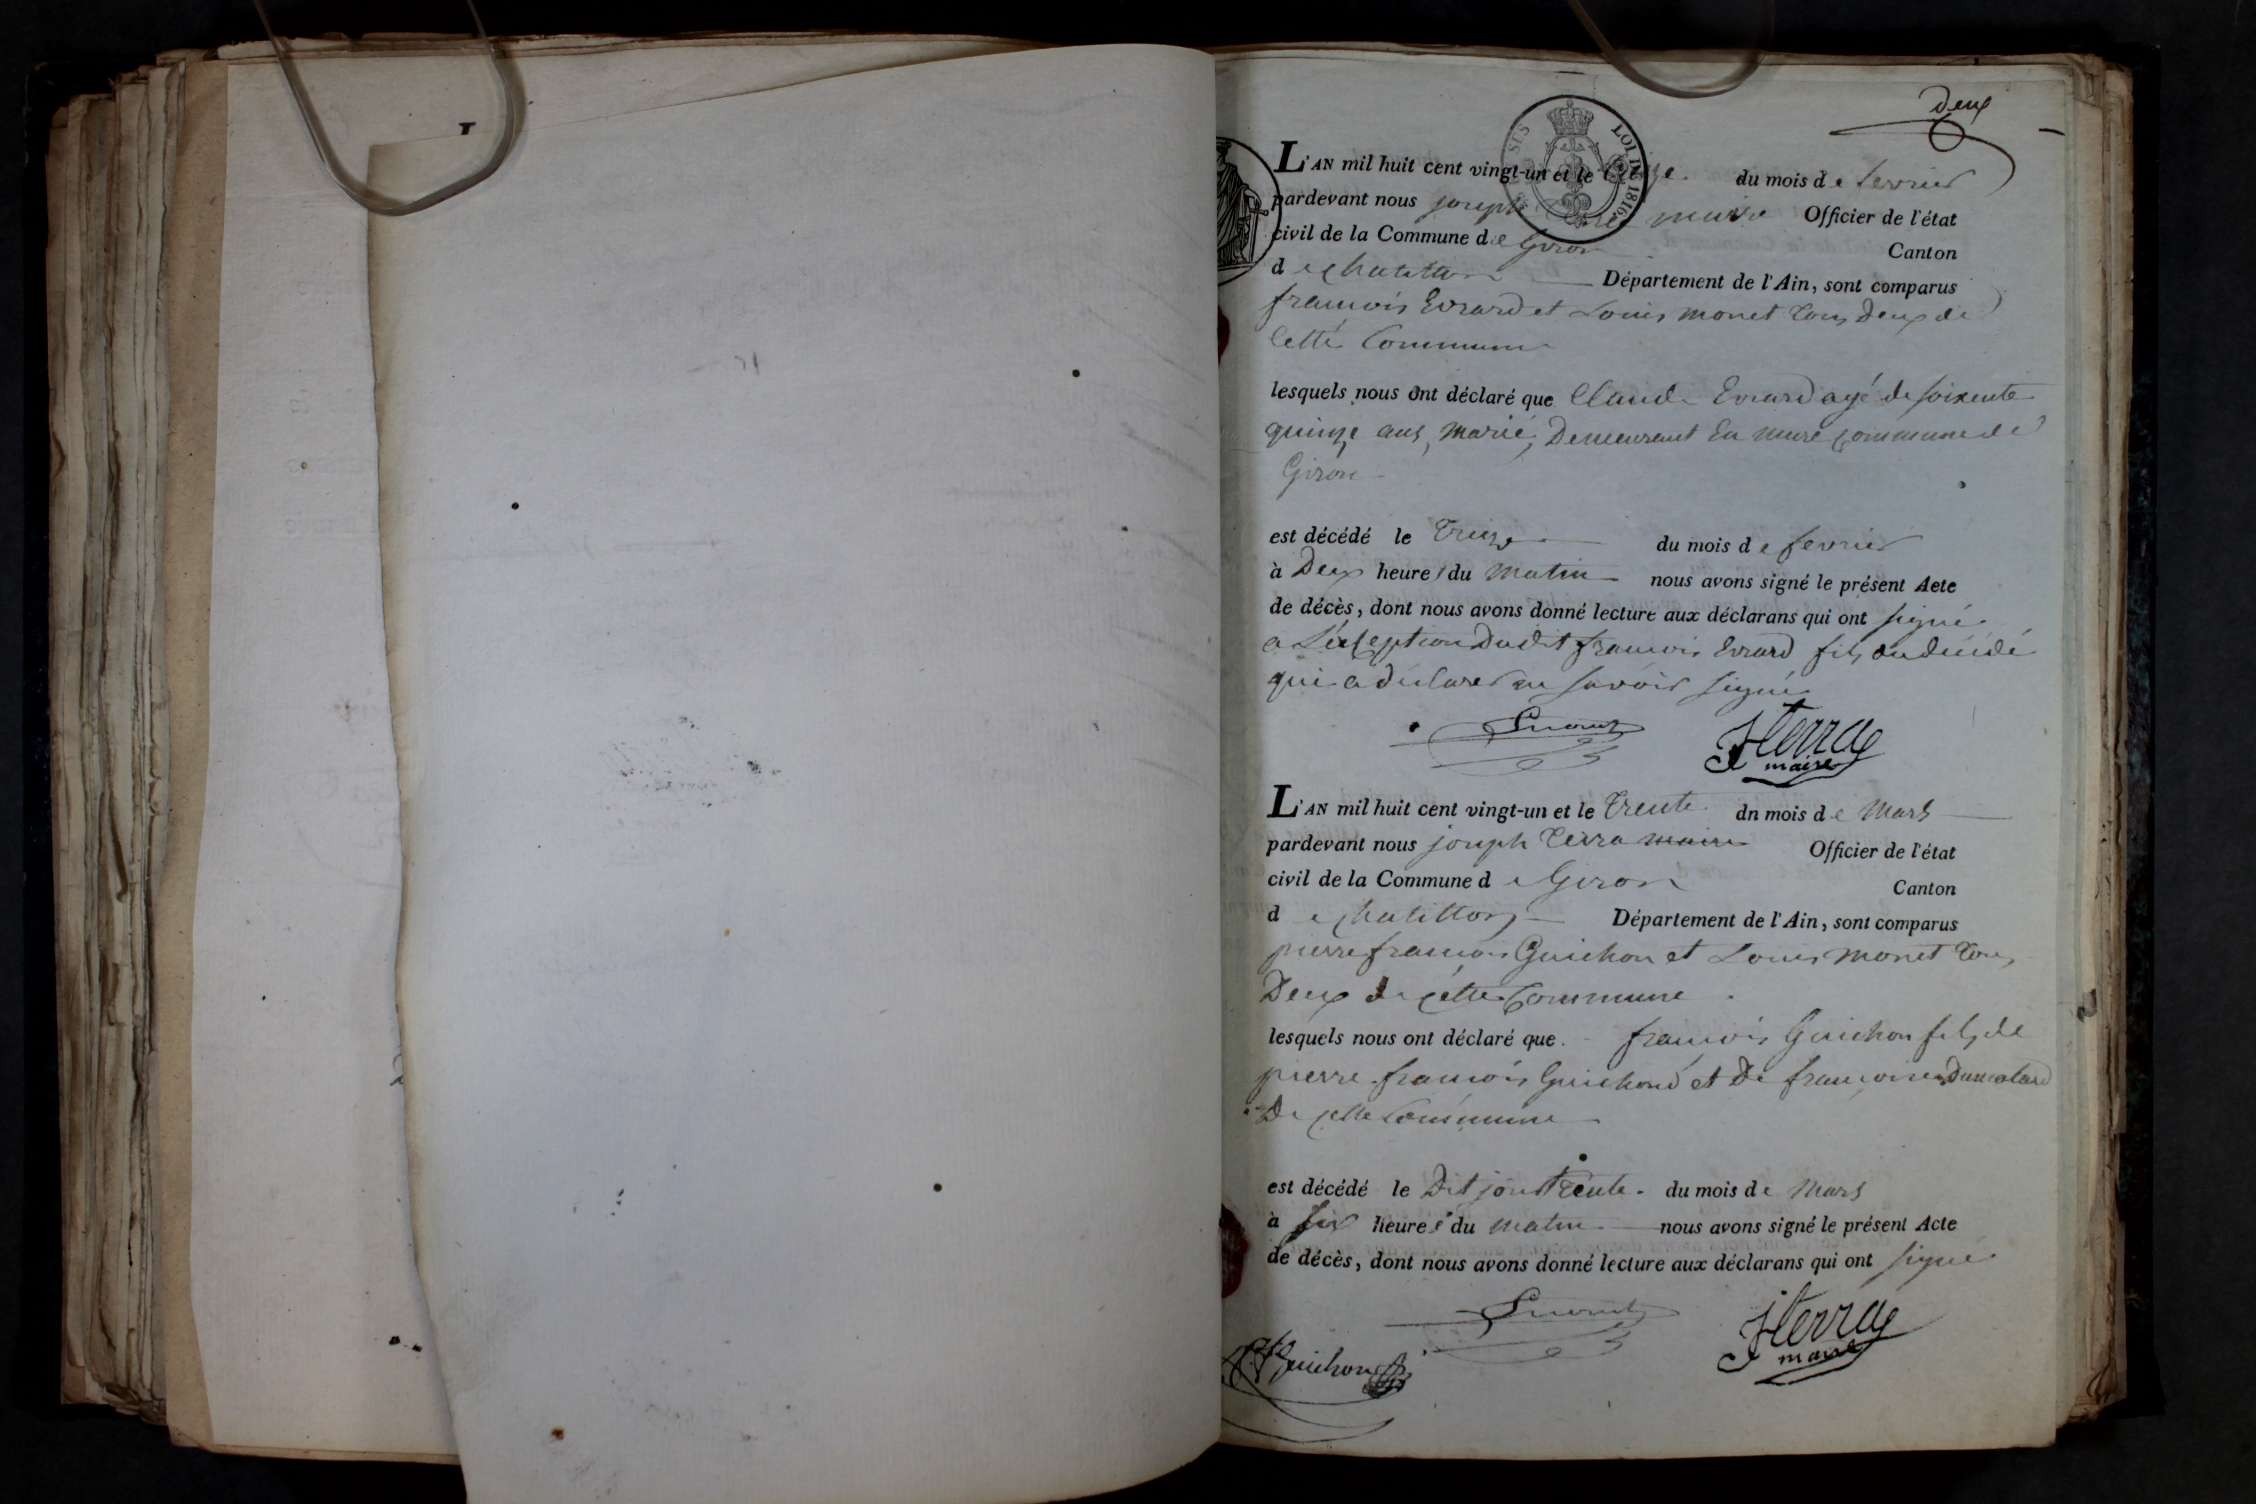 Deux
LOI DE 1816
L'AN mil huit cent vingt-un et le treize du mois de fevrier
pardevant nous joseph maire Officier de l'état
civil de la Commune de Giron Canton
de chatillon Département de l'Ain, sont comparus
francois Evrard et Louis monet tous Deux de
Cette Commune
lesquels nous ont déclaré que Claude Evrard agé de soixente
quinze ans, marié, Demeurant En commune de
Giron
est décédé le treize du mois de fevrier
à Deux heures du matin nous avons signé le présent Acte
de décès, dont nous avons donné lecture aux déclarans qui ont signé
a L'exception Dudit francois Evrard fils du décédé
qui a déclarer ne savoir signé
Lmonet JTerra
maire
L'AN mil huit cent vingt-un et le trente dn mois de Mars
pardevant nous joseph terra maire Officier de l'état
civil de la Commune de Giron Canton
de chatillon Département de l'Ain, sont comparus
pierre francois Guichon et Louis monet tous
Deux de cette Commune
lesquels nous ont déclaré que francois Guichon fils de
pierre francois Guichon et De francoise
De cette Commune
est décédé le Dit jour trente du mois de Mars
à six heures du matin nous avons signé le présent Acte
de décès, dont nous avons donné lecture aux déclarans qui ont signé
Lmonet JTerra
Guichon maire